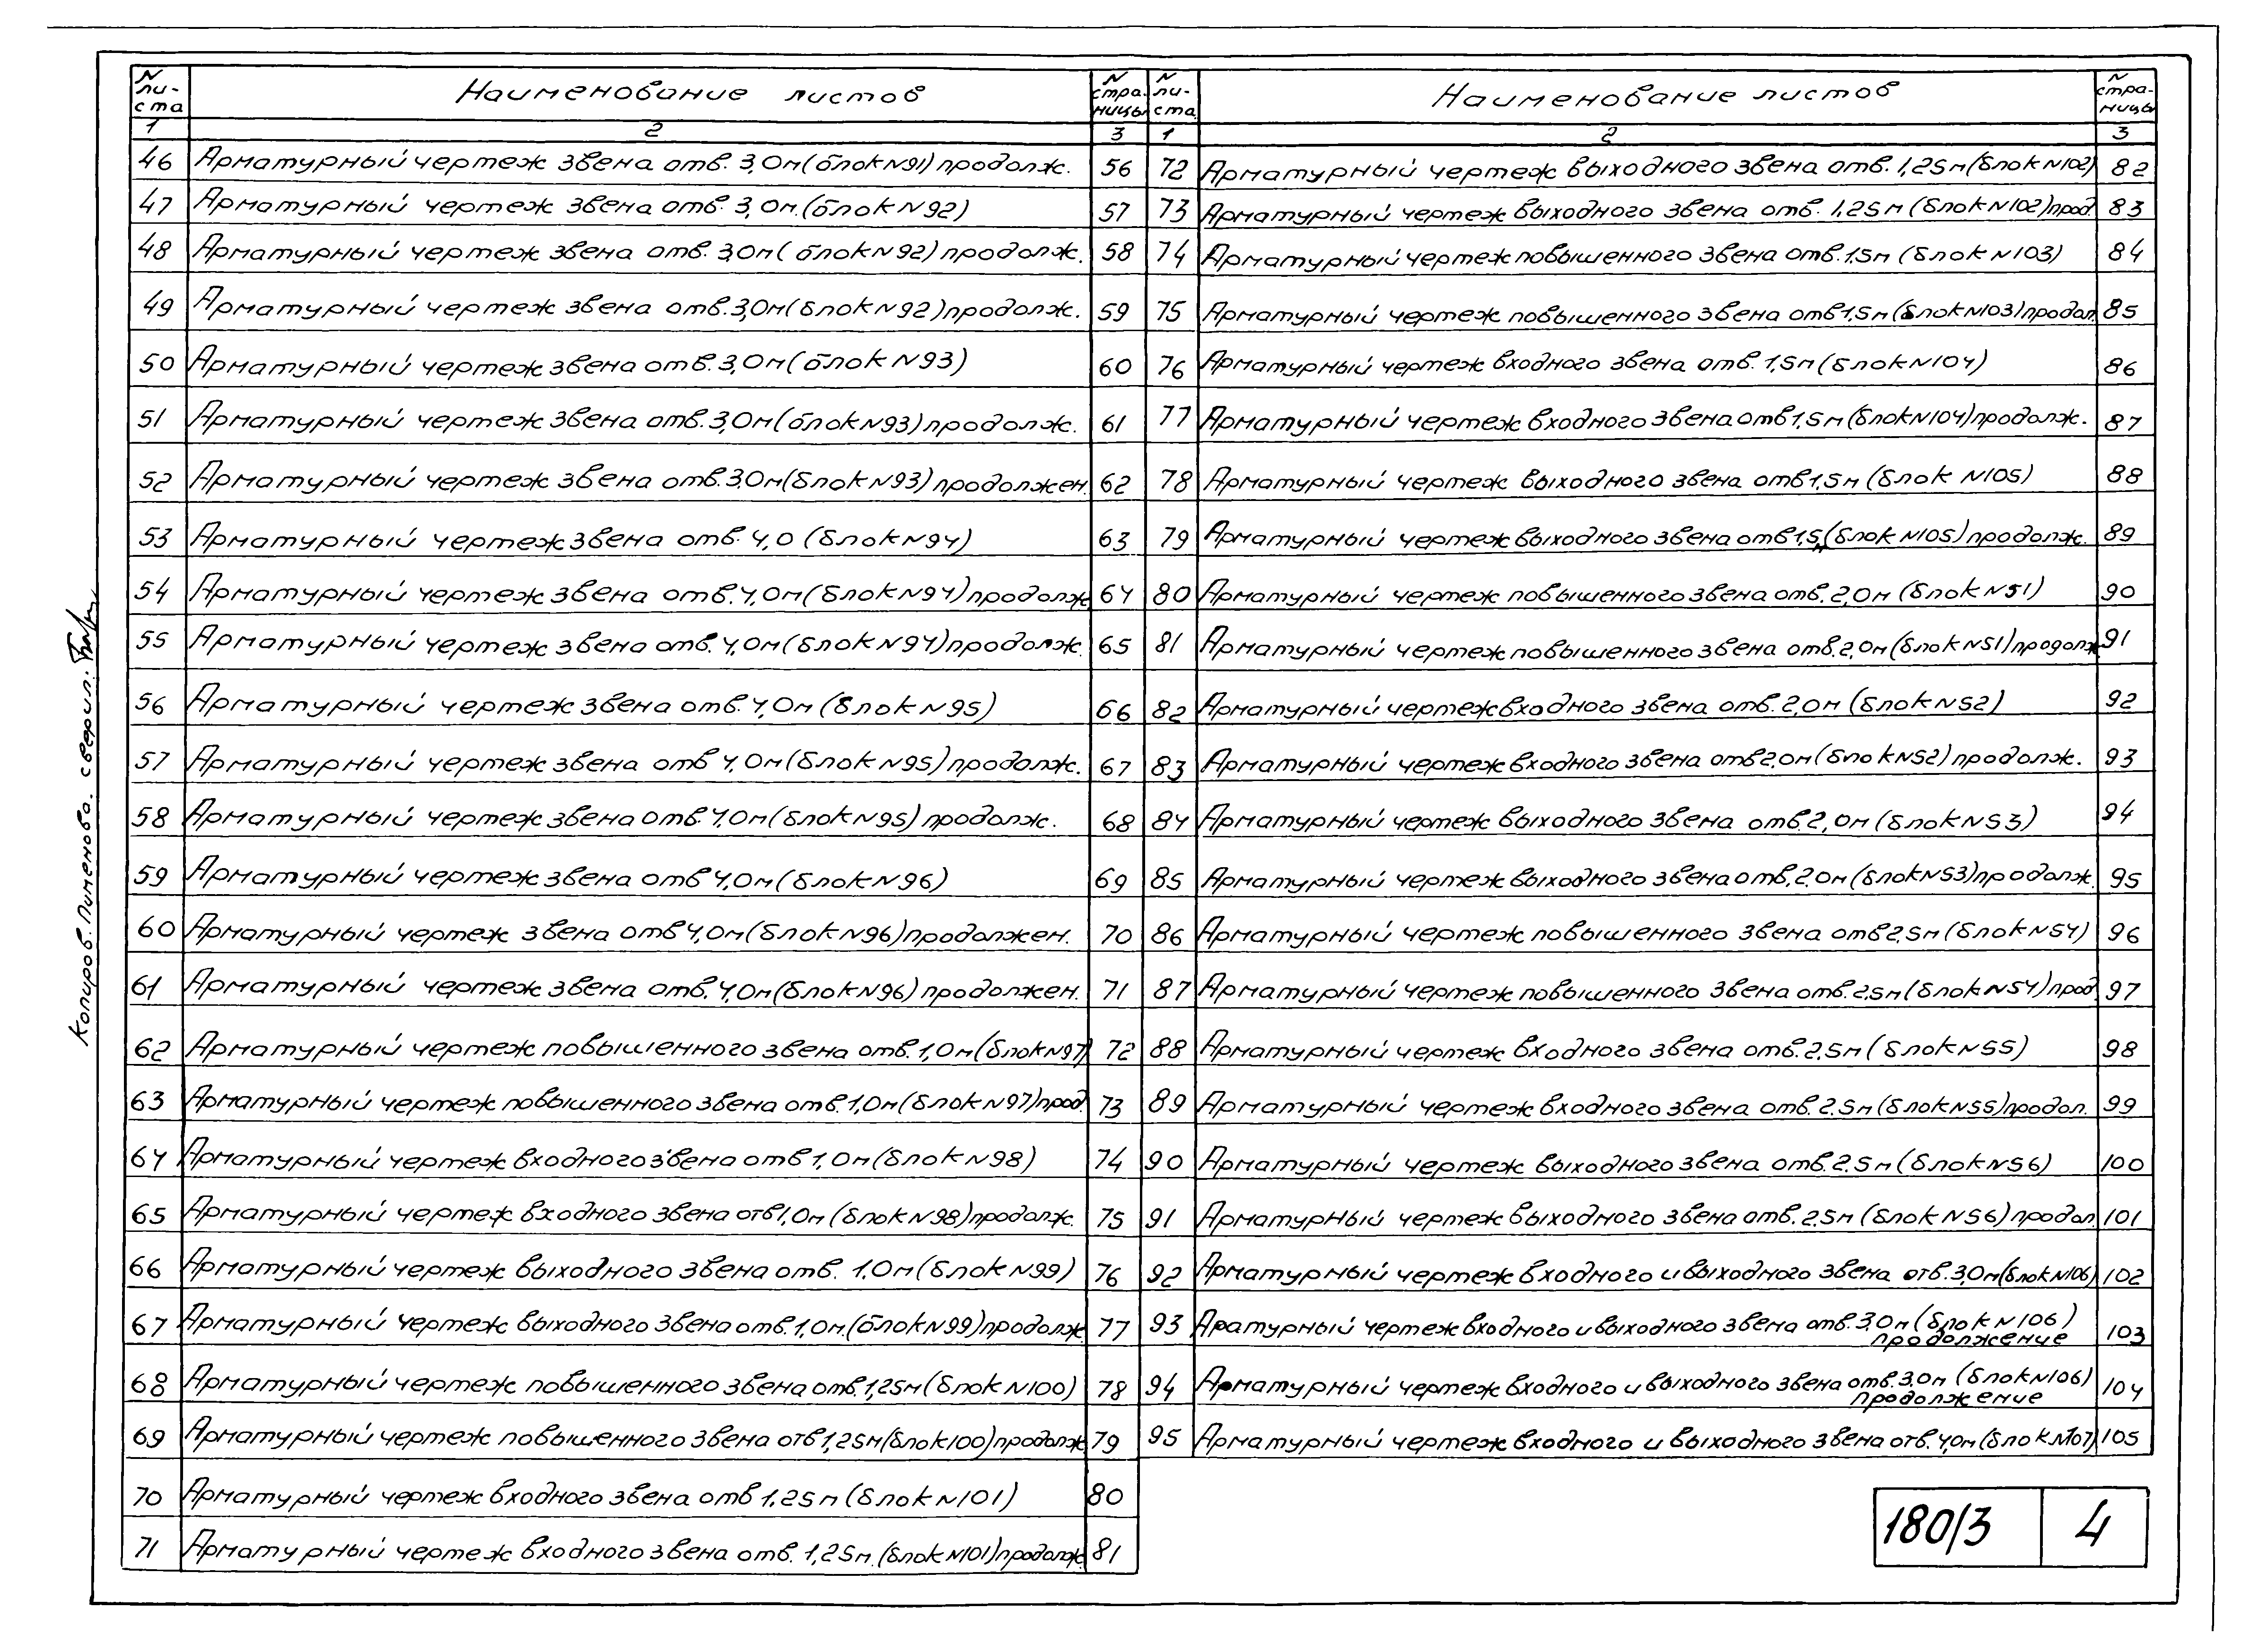 N ли-ста Наименование листов N стра-ницы
1 2 3
46 Арматурный чертеж звена отв. 3,0м (блок N91) продолж. 56
47 Арматурный чертеж звена отв. 3,0м. (блок N92) 57
48 Арматурный чертеж звена отв. 3,0м ( блок N92) продолж. 58
49 Арматурный чертеж звена отв. 3,0м (блок N92) продолж. 59
50 Арматурный чертеж звена отв. 3,0м (блок N93) 60
51 Арматурный чертеж звена отв. 3,0м (блок N93) продолж. 61
52 Арматурный чертеж звена отв. 3.0м (блок N93) продолжен. 62
53 Арматурный чертеж звена отв. 4,0 (блок N94) 63
54 Арматурный чертеж звена отв. 4,0м (блок N94) продолж 64
55 Арматурный чертеж звена отв. 4,0м (блок N94) продолж. 65
56 Арматурный чертеж звена отв. 4,0м (блок N95) 66
57 Арматурный чертеж звена отв 4,0м (блок N95) продолж. 67
58 Арматурный чертеж звена отв 4,0м (блок N95) продолж. 68
59 Арматурный чертеж звена отв 4,0м (блок N96) 69
60 Арматурный чертеж звена отв 4,0м (блок N96) продолжен. 70
61 Арматурный чертеж звена отв. 4,0м (блок N96) продолжен. 71
62 Арматурный чертеж повышенного звена отв. 1,0м (блок N97) 72
63 Арматурный чертеж повышенного звена отв. 1,0м (блок N97) прод. 73
64 Арматурный чертеж входного звена отв 1,0м (блок N98) 74
65 Арматурный чертеж входного звена отв 1,0м (блок N98) продолж. 75
66 Арматурный чертеж выходного звена отв. 1,0м (блок N99) 76
67 Арматурный чертеж выходного звена отв. 1,0м. (блок N99) продолж 77
68 Арматурный чертеж повышенного звена отв. 1,25м (блок N100) 78
69 Арматурный чертеж повышенного звена отв 1,25м (блок 100) продолж 79
70 Арматурный чертеж входного звена отв 1,25м (блок N101) 80
71 Арматурный чертеж входного звена отв. 1,25м. (блок N101) продолж. 81
N ли-ста Наименование листов N стра-ницы
1 2 3
72 Арматурный чертеж выходного звена отв. 1,25м (блок N102) 82
73 Арматурный чертеж выходного звена отв. 1,25м (блок N102) прод 83
74 Арматурный чертеж повышенного звена отв. 1,5м (блок N103) 84
75 Арматурный чертеж повышенного звена отв 1,5м (блок N103) продол. 85
76 Арматурный чертеж входного звена отв. 1,5м (блок N104) 86
77 Арматурный чертеж входного звена отв 1,5м (блок N104) продолж. 87
78 Арматурный чертеж выходного звена отв 1,5м (блок N105) 88
79 Арматурный чертеж выходного звена отв 1,5м (блок N105) продолж. 89
80 Арматурный чертеж повышенного звена отв. 2,0м (блок N51) 90
81 Арматурный чертеж повышенного звена отв. 2,0м (блок N51) продолж 91
82 Арматурный чертеж входного звена отв. 2,0м (блок N52) 92
83 Арматурный чертеж входного звена отв 2,0м (блок N52) продолж. 93
84 Арматурный чертеж выходного звена отв. 2,0м (блок N53) 94
85 Арматурный чертеж выходного звена отв. 2,0м (блок N53) продолж. 95
86 Арматурный чертеж повышенного звена отв 2,5м (блок N54) 96
87 Арматурный чертеж повышенного звена отв. 2,5м (блок N54) прод. 97
88 Арматурный чертеж входного звена отв. 2,5м (блок N55) 98
89 Арматурный чертеж входного звена отв. 2.5м (блок N55) продол. 99
90 Арматурный чертеж выходного звена отв. 2.5м (блок N56) 100
91 Арматурный чертеж выходного звена отв. 2,5м (блок N56) продол. 101
92 Арматурный чертеж входного и выходного звена отв. 3,0м (блок N106) 102
93 Аратурный чертеж входного и выходного звена отв. 3,0м (блок N106)
продолжение 103
94 Арматурный чертеж входного и выходного звена отв. 3,0м (блок N106)
продолжение 104
95 Арматурный чертеж входного и выходного звена отв. 4,0м (блок N107) 105
180/3 4
Копиров. Пименова. сверил: